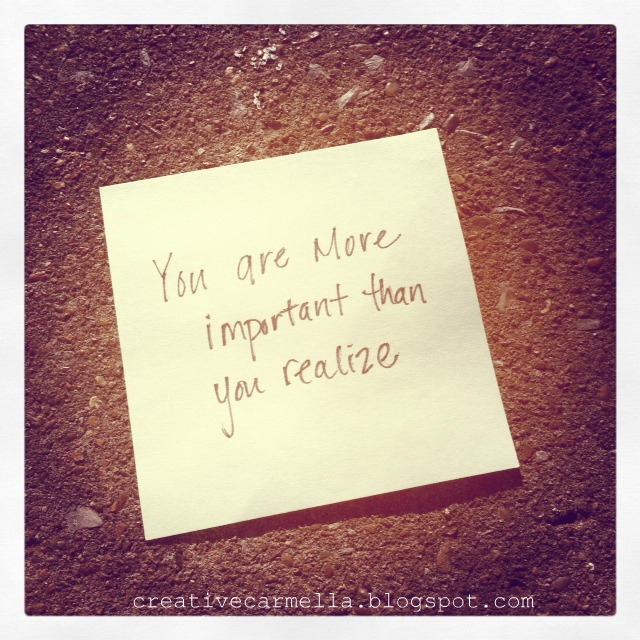 You are More
important than
you realize
creativecarmella.blogspot.com